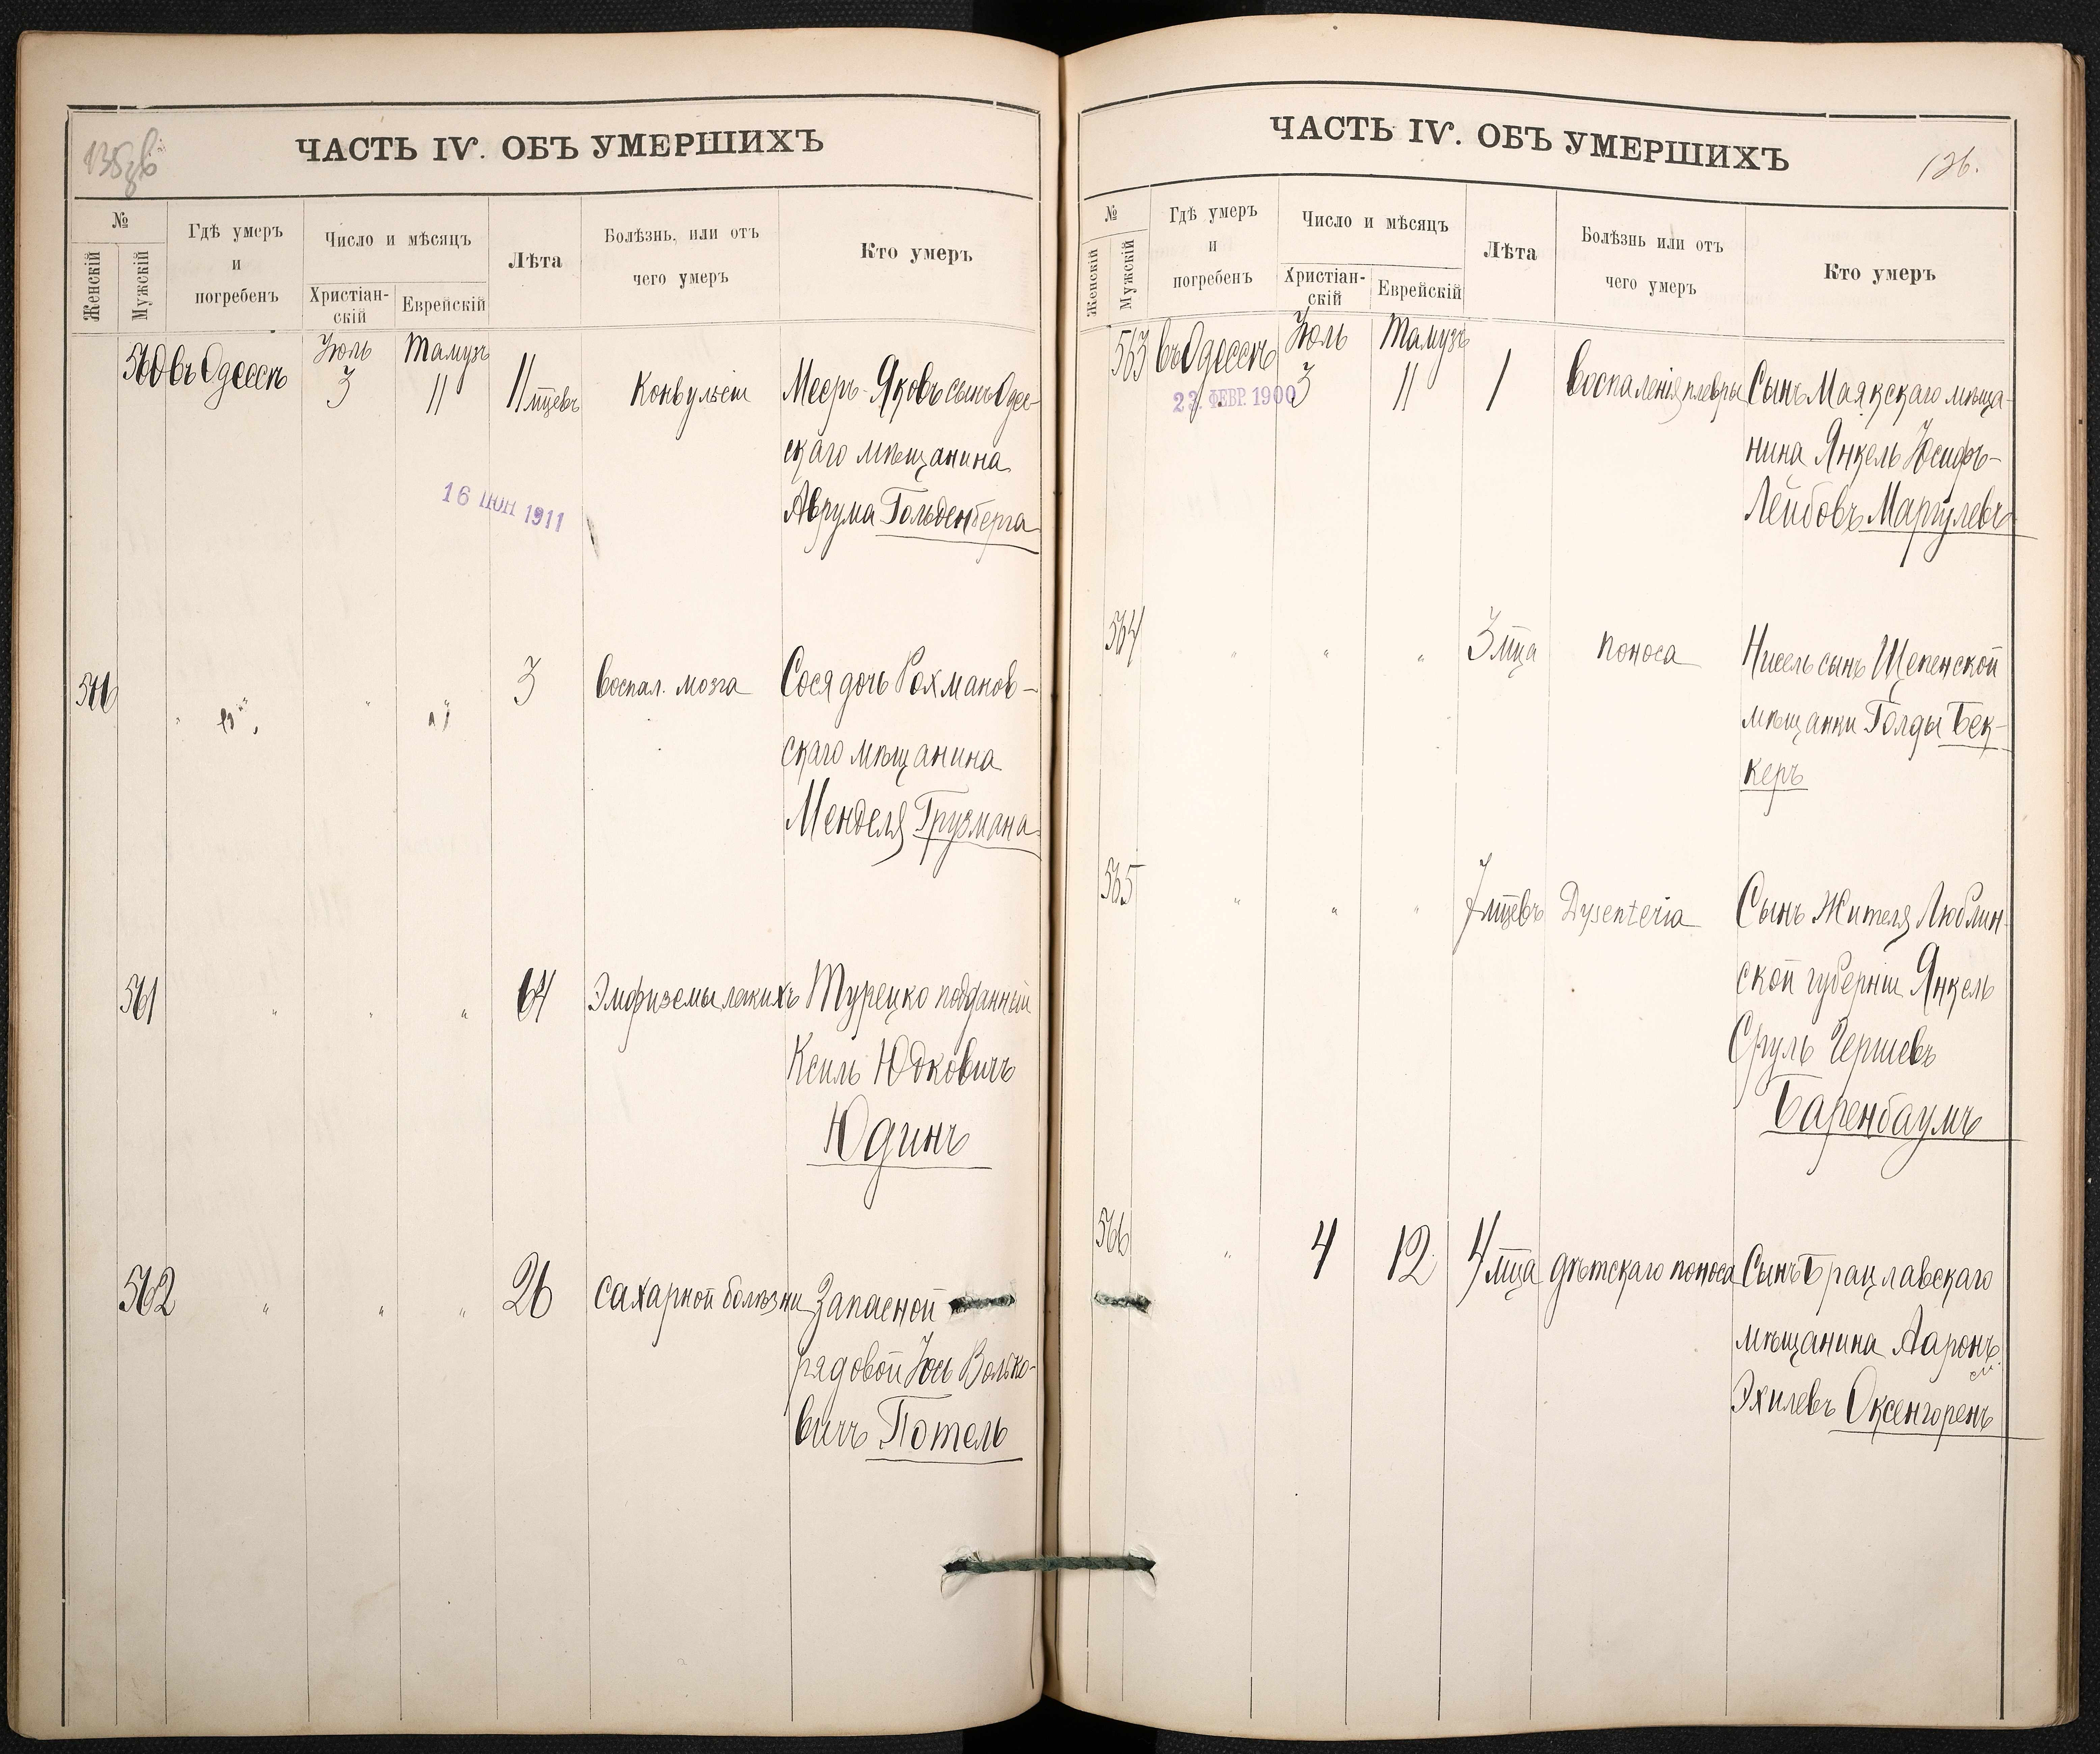 ЧАСТЬ IV. ОБЪ УМЕРШИХЪ
№
Женскій
Мужскій
Гдѣ умеръ
и
погребенъ
Число и мѣсяцъ
Христіан-
скій
Еврейскій
Лѣта
Болѣзнь, или отъ
чего умеръ
Кто умеръ
560 въ Одессѣ Іюль 3 Тамузъ 11 11 мцевъ Конвульсіи Мееръ-Яковъ сынъ Одес-
скаго мѣщанина
Аврума Гольденберга
16 ІЮН 1911
3 Воспал. мозга Сося дочь Рохманов-
скаго мѣщанина
Менделя Грузмана
561 " " " 64 Эмфиземы легкихъ Турецко подданный
Ксиль Юдковичъ
Юдинъ
562 " " " 26 Сахарной болѣзни Запасной
рядовой Іось Волько-
вичъ Потель
ЧАСТЬ IV. ОБЪ УМЕРШИХЪ
126.
№
Женскій
Мужскій
Гдѣ умеръ
и
погребенъ
Число и мѣсяцъ
Христіан-
скій
Еврейскій
Лѣта
Болѣзнь или отъ
чего умеръ
Кто умеръ
563 въ Одессѣ Іюль 3 Тамузъ 11 1 Воспаленія плевры Сынъ Маякскаго мѣща-
23. ФЕВР. 1900
нина Янкель Іосифъ-
Лейбовъ Маргулевъ
564 " " " 3 мца Поноса Нисель сынъ Щепенской
мѣщанки Голды Бек-
керъ
565 " " " 7 мцевъ Dysenteria Сынъ Жителя Люблин-
ской губерніи Янкель
Сруль Гершевъ
Баренбаумъ
566 " 4 12 4 мца дѣтскаго поноса Сынъ Брацлавскаго
мѣщанина Ааронъ
Эхилевъ Оксенгоренъ